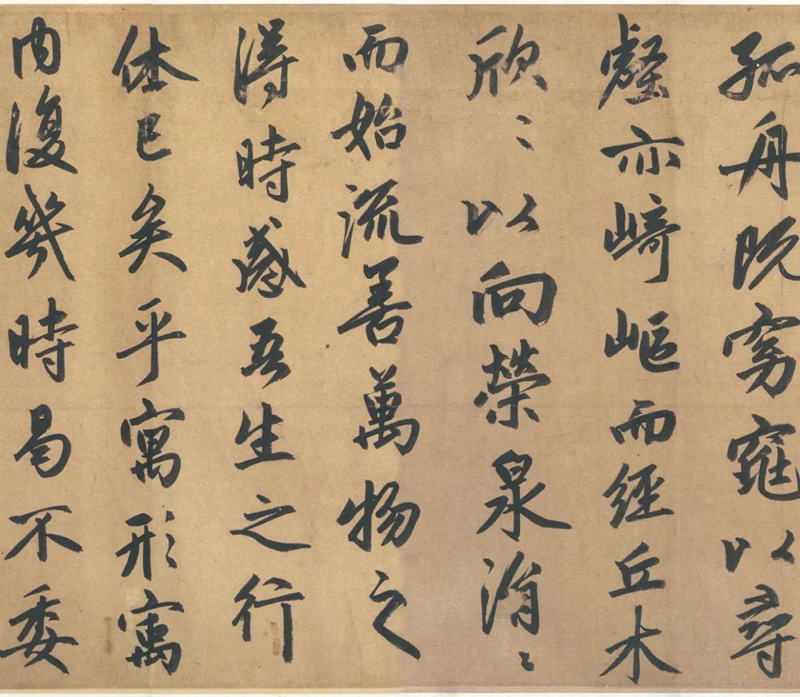 孤舟既窈窕以尋
壑亦崎嶇而經丘木
欣〻以向榮泉涓〻
而始流善萬物之
得時感吾生之行
休已矣乎寓形寓
內復幾時曷不委